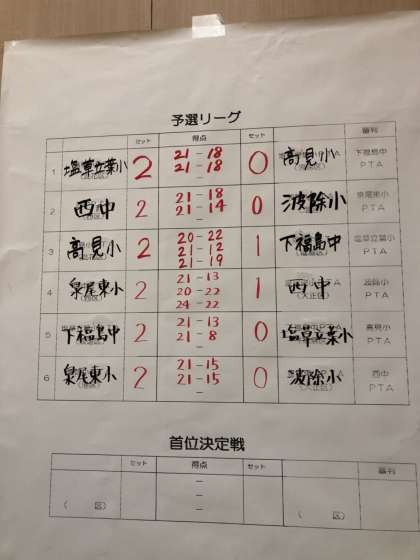 予選リーグ
セット 得点 セット 審判
1 塩草立葉小 2 21-18 0 高見小 下福島中
21-18 PTA
-
2 西中 2 21-18 0 波除小 泉尾東小
21-14 PTA
-
3 高見小 2 20-22 1 下福島中 塩草立葉小
21-12 PTA
21-19
4 泉尾東小 2 21-13 1 西中 波除小
20-22 PTA
24-22
5 下福島中 2 21-13 0 塩草立葉小 高見小
21-8 PTA
-
6 泉尾東小 2 21-15 0 波除小 西中
21-15 PTA
-
首位決定戦
セット 得点 セット 審判
-
-
( 区) - ( 区)